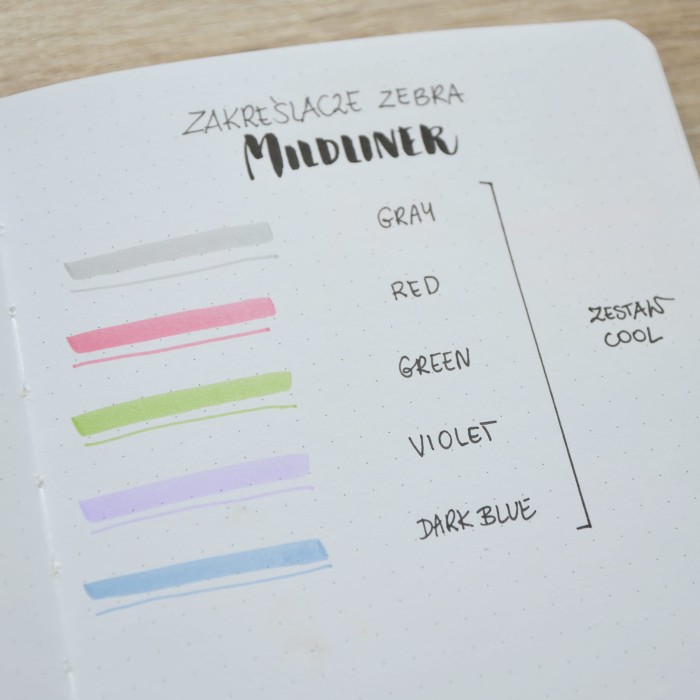 ZAKREŚLACZE ZEBRA
MILDLINER
GRAY
RED
GREEN
VIOLET
DARK BLUE
ZESTAW
COOL